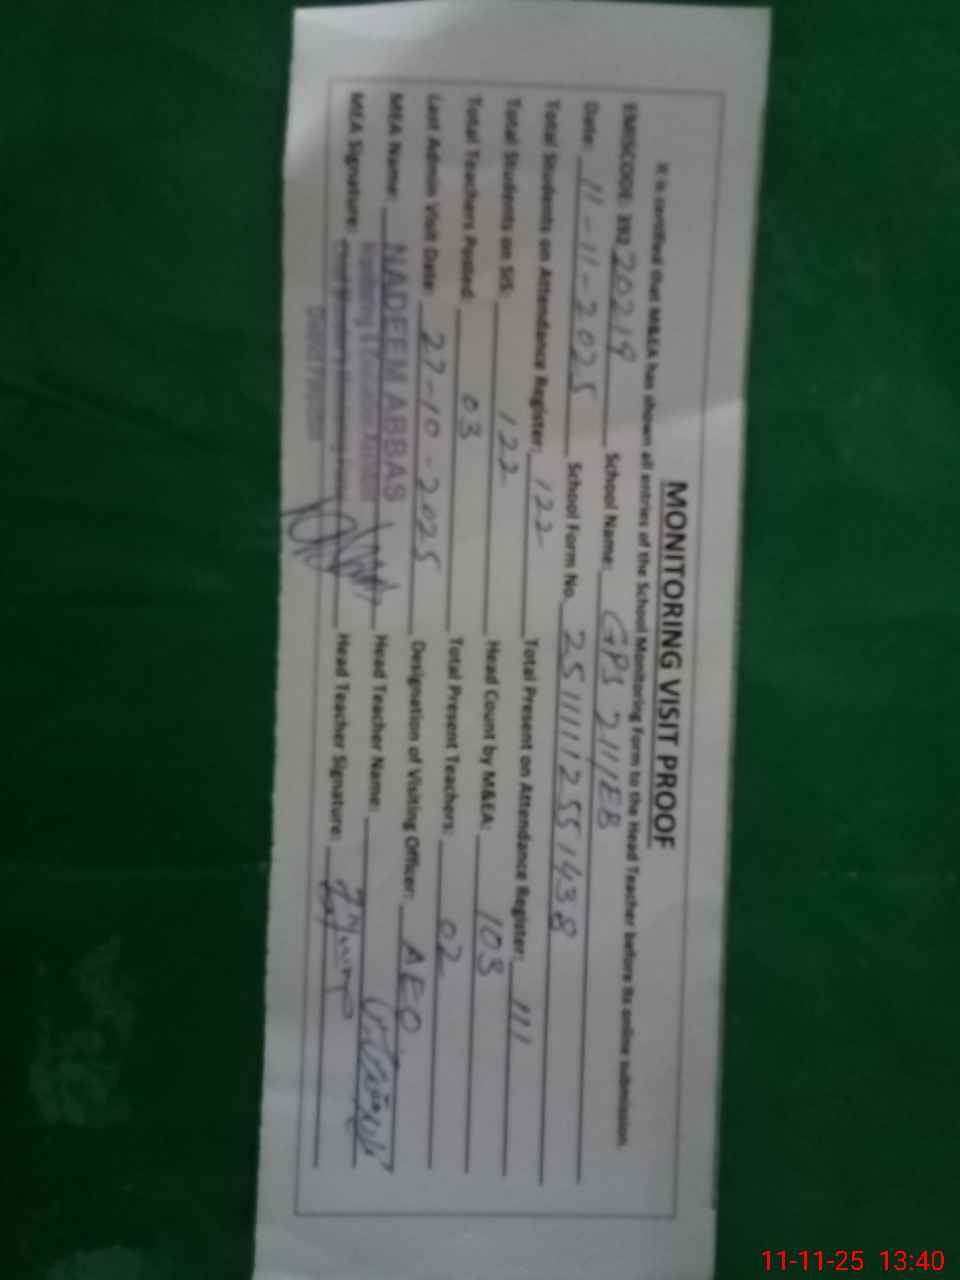 MONITORING VISIT PROOF
It is certified that M&EA has shown all entries of the School Monitoring Form to the Head Teacher before its online submission.
EMISCODE: 392 20219 School Name: GPS 211/EB
Date: 11-11-2025 School Form No. 25111112551438
Total Students on Attendance Register: 122 Total Present on Attendance Register: 111
Total Students on SIS: 122 Head Count by M&EA: 103
Total Teachers Posted: 03 Total Present Teachers: 02
Last Admin Visit Date: 27-10-2025 Designation of Visiting Officer: AEO
MEA Name: NADEEM ABBAS Head Teacher Name:
Monitoring & Evaluation Assistant
MEA Signature: Head Teacher Signature:
11-11-25 13:40